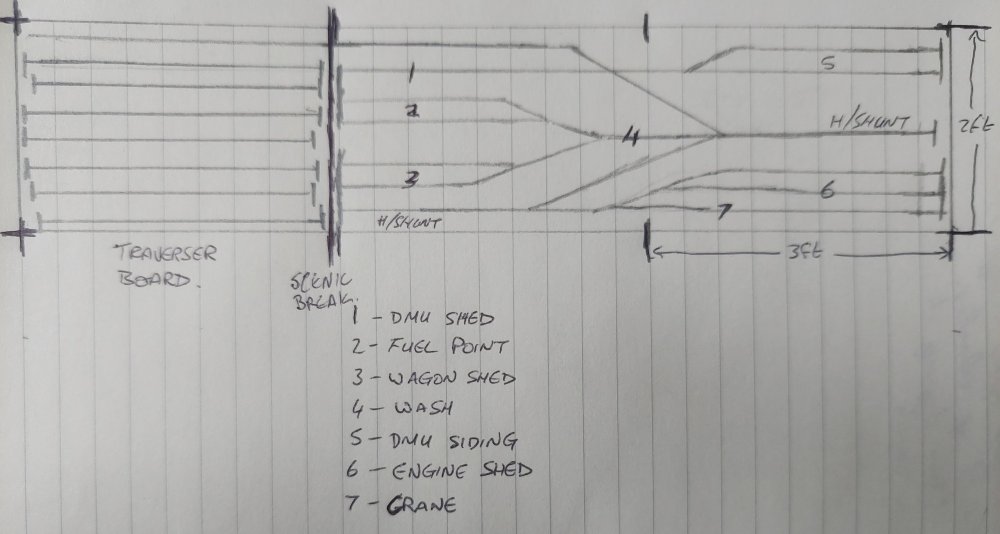 1
5
2
H/SHUNT
2ft
4
3
6
7
H/SHUNT
3ft
TRAVERSER
BOARD.
SCENIC
BREAK.
1 - DMU SHED
2 - FUEL POINT
3 - WAGON SHED
4 - WASH
5 - DMU SIDING
6 - ENGINE SHED
7 - CRANE